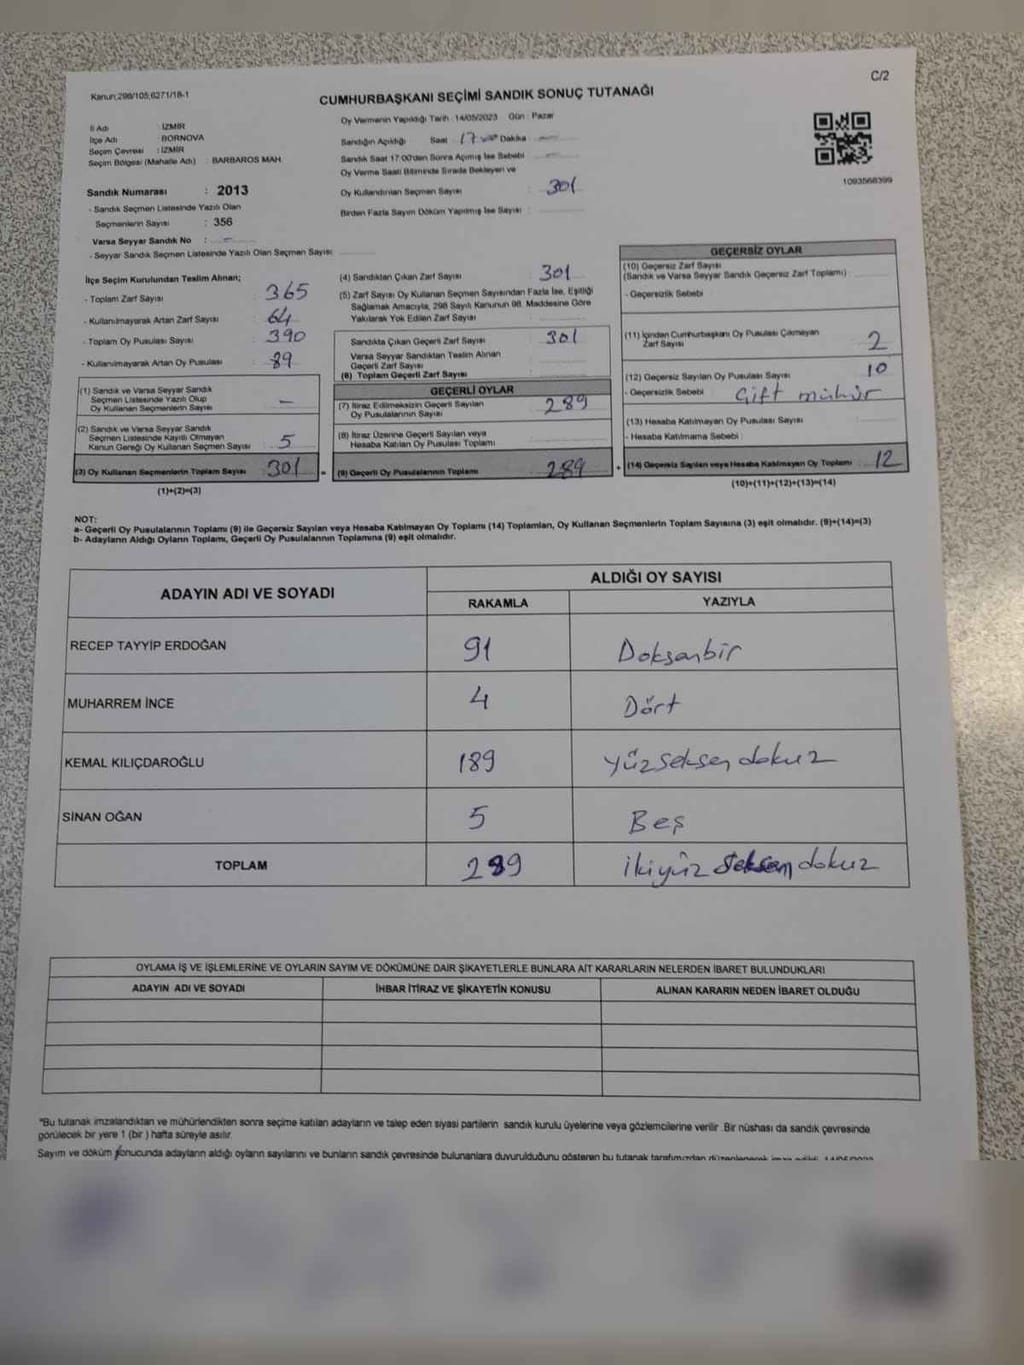 Kanun:298/105,6271/18-1
C/2
CUMHURBAŞKANI SEÇİMİ SANDIK SONUÇ TUTANAĞI
İl Adı : İZMİR
İlçe Adı : BORNOVA
Seçim Çevresi : İZMİR
Seçim Bölgesi (Mahalle Adı) : BARBAROS MAH.
Sandık Numarası : 2013
- Sandık Seçmen Listesinde Yazılı Olan
Seçmenlerin Sayısı : 356
Varsa Seyyar Sandık No : -
- Seyyar Sandık Seçmen Listesinde Yazılı Olan Seçmen Sayısı:
Oy Vermenin Yapıldığı Tarih : 14/05/2023 Gün : Pazar
Sandığın Açıldığı Saat : 17 Dakika :
Sandık Saat 17:00'den Sonra Açılmış İse Sebebi :
Oy Verme Saati Bitiminde Sırada Bekleyen ve
Oy Kullandırılan Seçmen Sayısı : 301
Birden Fazla Sayım Döküm Yapılmış İse Sayısı :
1093568399
İlçe Seçim Kurulundan Teslim Alınan;
- Toplam Zarf Sayısı : 365
- Kullanılmayarak Artan Zarf Sayısı : 64
- Toplam Oy Pusulası Sayısı : 390
- Kullanılmayarak Artan Oy Pusulası : 89
(1) Sandık ve Varsa Seyyar Sandık
Seçmen Listesinde Yazılı Olup
Oy Kullanan Seçmenlerin Sayısı : -
(2) Sandık ve Varsa Seyyar Sandık
Seçmen Listesinde Kayıtlı Olmayan
Kanun Gereği Oy Kullanan Seçmen Sayısı : 5
(3) Oy Kullanan Seçmenlerin Toplam Sayısı : 301
(1)+(2)=(3)
(4) Sandıktan Çıkan Zarf Sayısı : 301
(5) Zarf Sayısı Oy Kullanan Seçmen Sayısından Fazla İse, Eşitliği
Sağlamak Amacıyla, 298 Sayılı Kanunun 98. Maddesine Göre
Yakılarak Yok Edilen Zarf Sayısı :
Sandıkta Çıkan Geçerli Zarf Sayısı : 301
Varsa Seyyar Sandıktan Teslim Alınan
Geçerli Zarf Sayısı :
(6) Toplam Geçerli Zarf Sayısı :
GEÇERLİ OYLAR
(7) İtiraz Edilmeksizin Geçerli Sayılan
Oy Pusulalarının Sayısı : 289
(8) İtiraz Üzerine Geçerli Sayılan veya
Hesaba Katılan Oy Pusulası Toplamı :
= (9) Geçerli Oy Pusulalarının Toplamı : 289
GEÇERSİZ OYLAR
(10) Geçersiz Zarf Sayısı
(Sandık ve Varsa Seyyar Sandık Geçersiz Zarf Toplamı) :
- Geçersizlik Sebebi :
(11) İçinden Cumhurbaşkanı Oy Pusulası Çıkmayan
Zarf Sayısı : 2
(12) Geçersiz Sayılan Oy Pusulası Sayısı : 10
- Geçersizlik Sebebi : Çift mühür
(13) Hesaba Katılmayan Oy Pusulası Sayısı :
- Hesaba Katılmama Sebebi :
+ (14) Geçersiz Sayılan veya Hesaba Katılmayan Oy Toplamı : 12
(10)+(11)+(12)+(13)=(14)
NOT:
a- Geçerli Oy Pusulalarının Toplamı (9) ile Geçersiz Sayılan veya Hesaba Katılmayan Oy Toplamı (14) Toplamları, Oy Kullanan Seçmenlerin Toplam Sayısına (3) eşit olmalıdır. (9)+(14)=(3)
b- Adayların Aldığı Oyların Toplamı, Geçerli Oy Pusulalarının Toplamına (9) eşit olmalıdır.
ADAYIN ADI VE SOYADI ALDIĞI OY SAYISI
RAKAMLA YAZIYLA
RECEP TAYYİP ERDOĞAN 91 Doksanbir
MUHARREM İNCE 4 Dört
KEMAL KILIÇDAROĞLU 189 Yüzseksen dokuz
SİNAN OĞAN 5 Beş
TOPLAM 289 İkiyüz seksen dokuz
OYLAMA İŞ VE İŞLEMLERİNE VE OYLARIN SAYIM VE DÖKÜMÜNE DAİR ŞİKAYETLERLE BUNLARA AİT KARARLARIN NELERDEN İBARET BULUNDUKLARI
ADAYIN ADI VE SOYADI İHBAR İTİRAZ VE ŞİKAYETİN KONUSU ALINAN KARARIN NEDEN İBARET OLDUĞU
*Bu tutanak imzalandıktan ve mühürlendikten sonra seçime katılan adayların ve talep eden siyasi partilerin sandık kurulu üyelerine veya gözlemcilerine verilir. Bir nüshası da sandık çevresinde
görülecek bir yere 1 (bir ) hafta süreyle asılır.
Sayım ve döküm sonucunda adayların aldığı oyların sayılarını ve bunların sandık çevresinde bulunanlara duyurulduğunu gösteren bu tutanak tarafımızdan düzenlenerek imza edildi. 14/05/2023